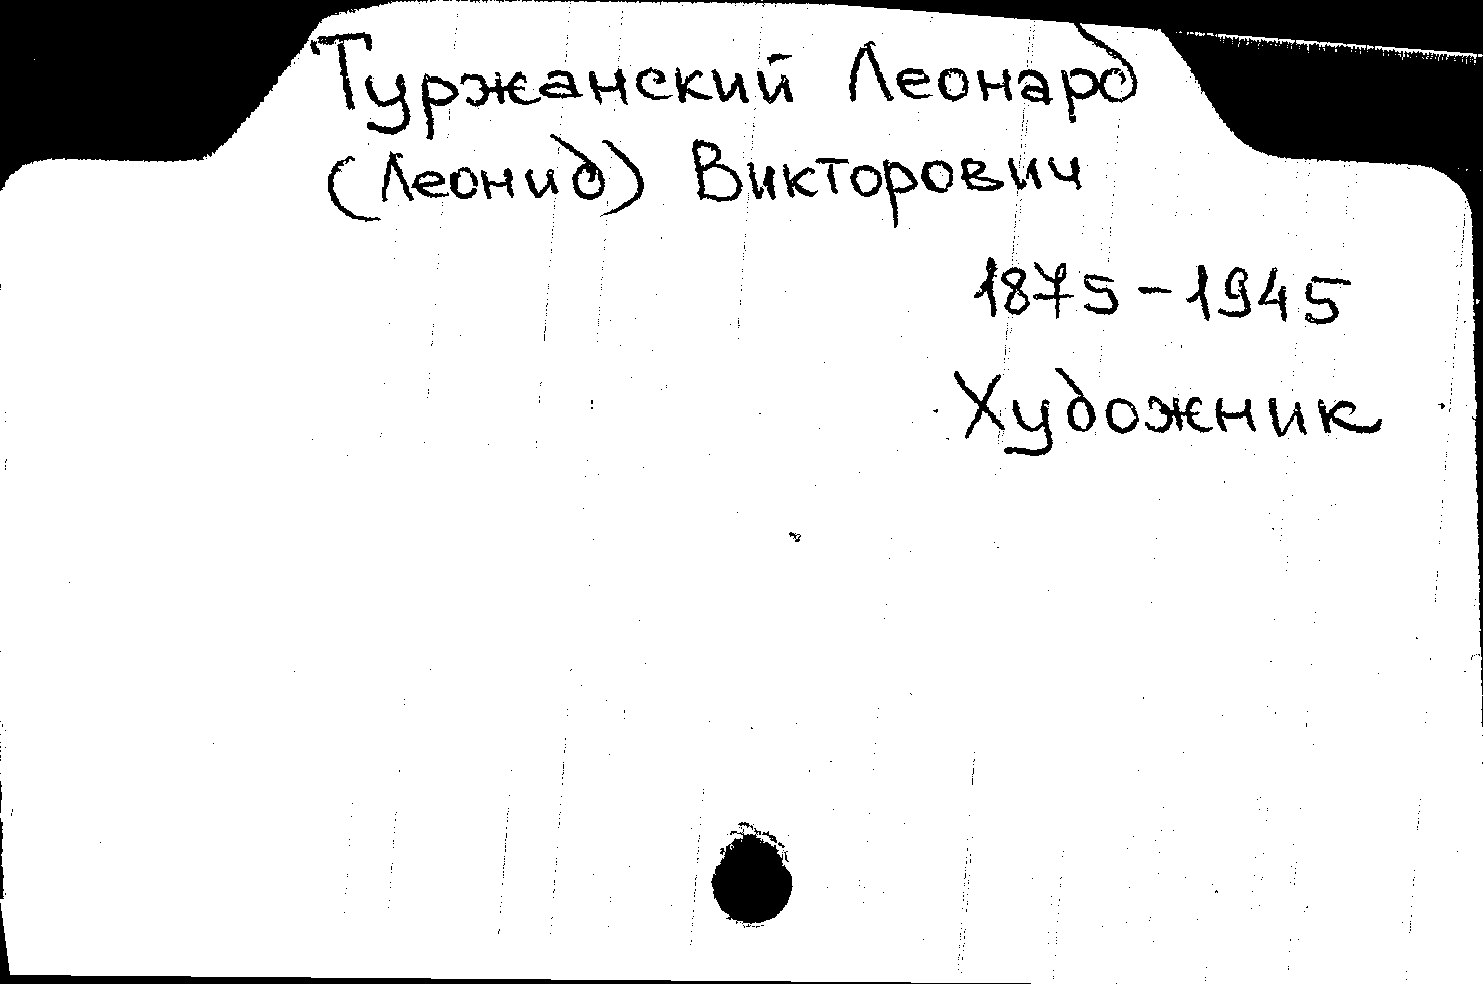 Туржанский Леонард
(Леонид) Викторович
1875-1945
Художник